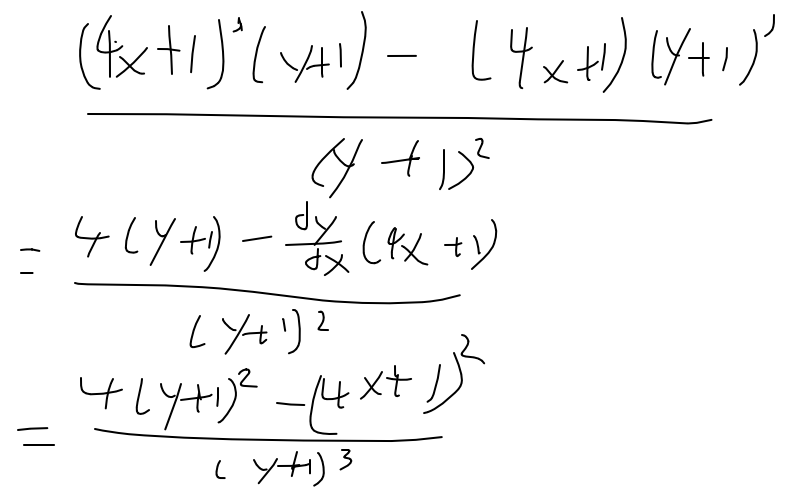 \frac{(4x+1)'(y+1) - (4x+1)(y+1)'}{(y+1)^2}
= \frac{4(y+1) - \frac{dy}{dx}(4x+1)}{(y+1)^2}
= \frac{4(y+1)^2 - (4x+1)^2}{(y+1)^3}